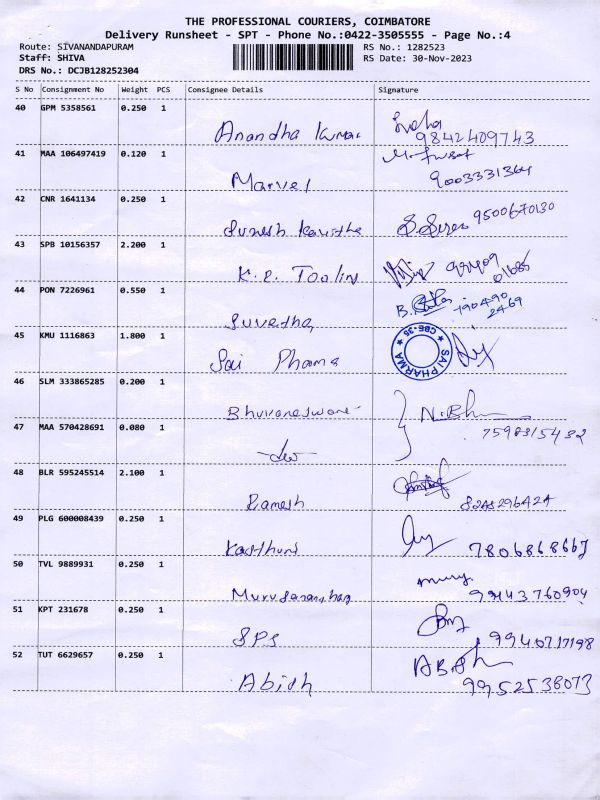 THE PROFESSIONAL COURIERS, COIMBATORE
Delivery Runsheet - SPT - Phone No.:0422-3505555 - Page No.:4
Route: SIVANANDAPURAM
Staff: SHIVA
DRS No.: DCJB128252304
RS No.: 1282523
RS Date: 30-Nov-2023
S No Consignment No Weight PCS Consignee Details Signature
40 GPM 5358561 0.250 1
Anandha Kumar 9842409743
41 MAA 106497419 0.120 1
Marvel 9003331364
42 CNR 1641134 0.250 1
9500670130
43 SPB 10156357 2.200 1
K.P. Tooling
44 PON 7226961 0.550 1
Suvetha
45 KMU 1116863 1.800 1
Sai Pharma SAI PHARMA CBE-35
46 SLM 333865285 0.200 1
Bhuvaneswari N.Bh
47 MAA 570428691 0.080 1
7598315432
48 BLR 595245514 2.100 1
Ramesh
49 PLG 600008439 0.250 1
7806868667
50 TVL 9889931 0.250 1
99143760904
51 KPT 231678 0.250 1
SPS
52 TUT 6629657 0.250 1
Abish 9952538073